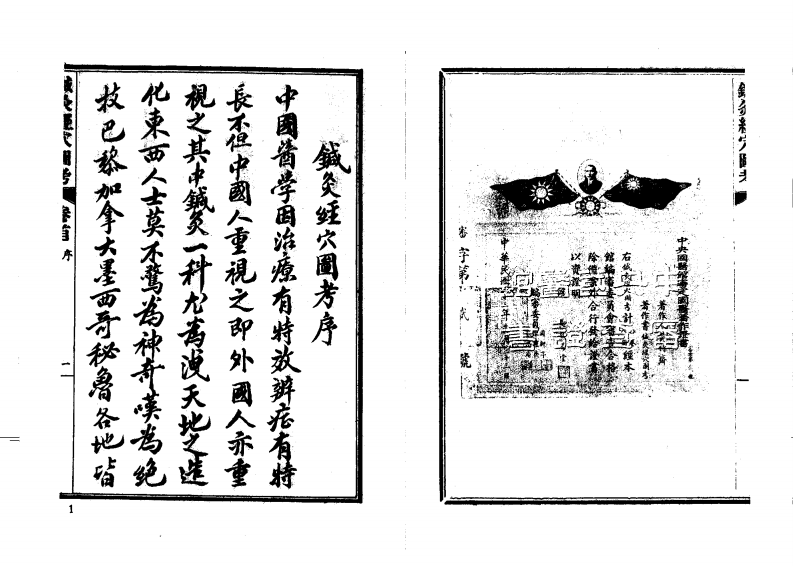 鍼灸經穴圖考
中央國醫館審定國醫著作證書
著作人
著作書
右 考計 本
館編審委員會審查合格
除備案外合行發給證書
以資證明
編審委員
中華民國
字第 貳 號
鍼灸經穴圖考序
中國醫學因治療有特效辨症有特
長不但中國人重視之即外國人亦重
視之其中鍼灸一科尤為洩天地之造
化東西人士莫不驚為神奇嘆為絕
技巴黎加拿大墨西哥秘魯各地皆
鍼灸經穴圖考 卷首 序 一
1